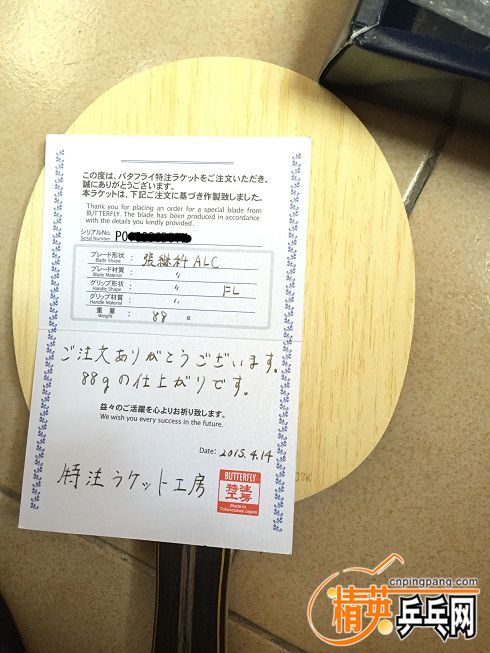 この度は、バタフライ特注ラケットをご注文いただき、
誠にありがとうございます。
本ラケットは、下記ご注文に基づき作製致しました。
Thank you for placing an order for a special blade from
BUTTERFLY. The blade has been produced in accordance
with the details you kindly provided.
シリアルNo.
Serial Number
P0
ブレード形状 : 張継科 ALC
Blade Shape
ブレード材質 : 〃
Blade Material
グリップ形状 : 〃 FL
Handle Shape
グリップ材質 : 〃
Handle Material
重量 : 88 g
Weight
ご注文ありがとうございます。
88gの仕上がりです。
益々のご活躍を心よりお祈り致します。
We wish you every success in the future.
Date: 2015.4.14
特注ラケット工房
BUTTERFLY
特注
工房
Made in
Tokorozawa Japan
07K
cnpingpang.com
精英乒乓网